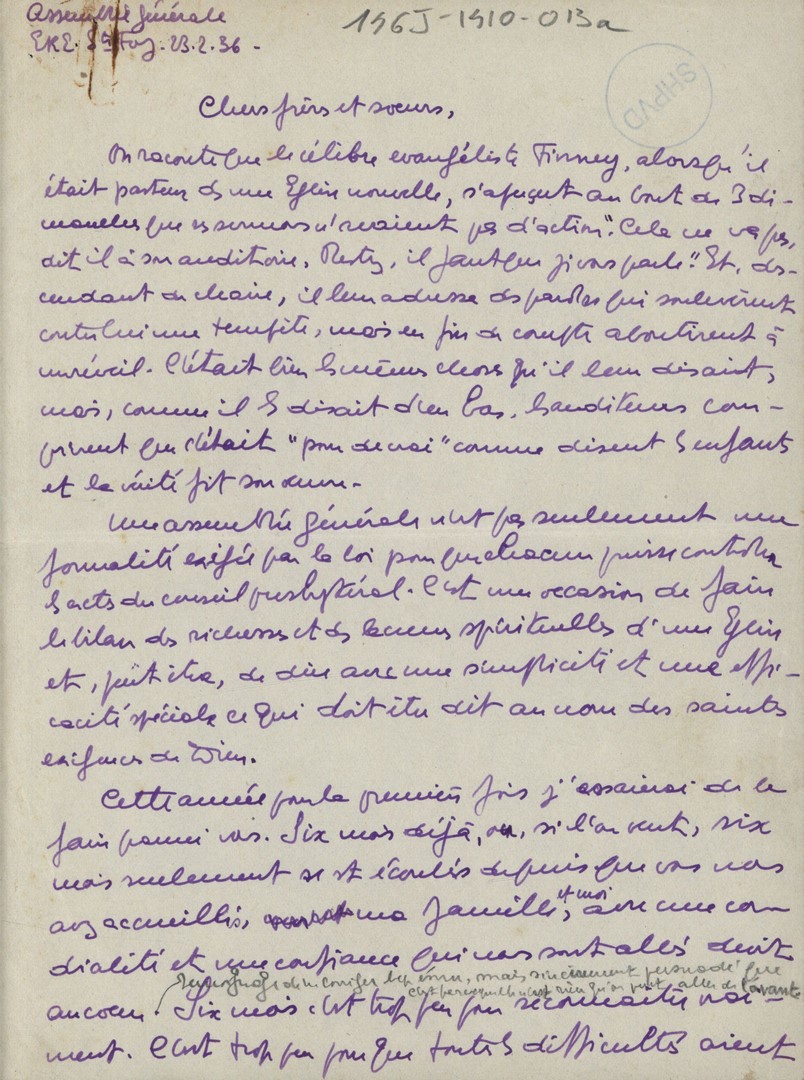 Assemblée générale
ERE. Ste Foy. 23.2.36 -
196J-1910-013a
SHPVD
Chers frères et soeurs,
On raconte que le célèbre évangéliste Finney, alors qu'il
était pasteur d'une Eglise nouvelle, s'aperçut au bout de 3 di-
manches que ses sermons n'avaient pas d'action. "Cela ne va pas,
dit il à son auditoire, Restez, il faut que je vous parle." Et, des-
cendant de chaire, il leur adressa des paroles qui soulevèrent
contre lui une tempête, mais en fin de compte aboutirent à
un réveil. C'était bien les mêmes choses qu'il leur disait,
mais, comme il les disait d'en bas, les auditeurs com-
prirent que c'était "pour de vrai" comme disent les enfants
et la vérité fit son oeuvre.
Une assemblée générale n'est pas seulement une
formalité exigée par la loi pour que chacun puisse contrôler
les actes du conseil presbytéral. C'est une occasion de faire
le bilan des richesses et des lacunes spirituelles d'une Eglise
et, peut être, de dire avec une simplicité et une effi-
cacité spéciale ce qui doit être dit au nom des saintes
exigences de Dieu.
Cette année pour la première fois j'essaierai de le
faire parmi vous. Six mois déjà, ou, si l'on veut, six
mois seulement se st écoulés depuis que vous nous
avez accueillis, ma famille et moi, avec une cor-
dialité et une confiance qui nous sont allés droit
au coeur. Six mois c'est trop peu pour se connaître vrai-
mais sincèrement persuadé que
c'est qu'on peut aller de l'avant
ment. C'est trop peu pour que toutes les difficultés aient